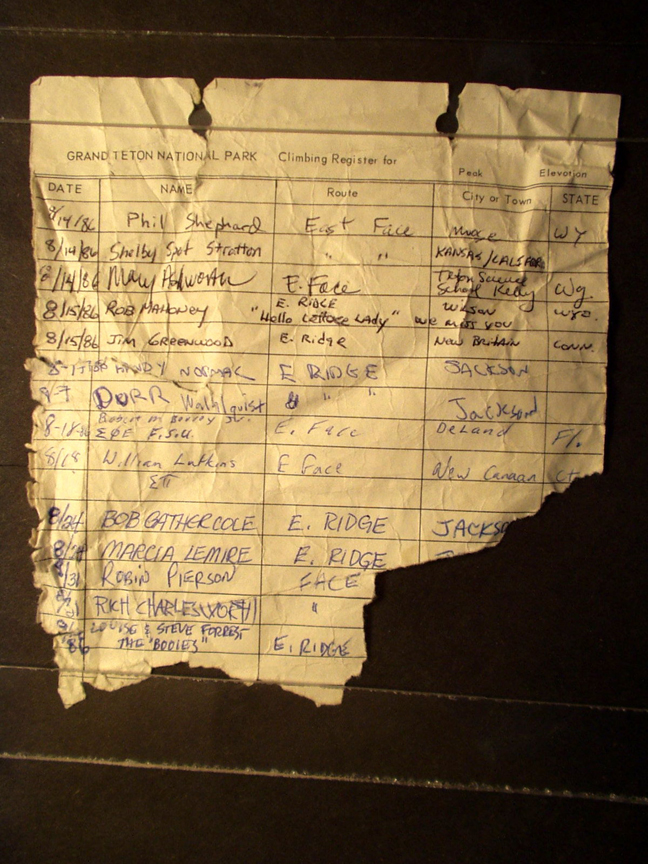 GRAND TETON NATIONAL PARK Climbing Register for
Peak Elevation
DATE NAME Route City or Town STATE
8/14/86 Phil Shephard East Face Moose WY
8/14/86 Shelby Spot Stratton " " KANSAS/
8/14/86 Mary E. Face Teton Science School Kelly Wy.
8/15/86 ROB MAHONEY E. RIDGE WILSON WYO.
"Hello Lettuce Lady" we miss you
8/15/86 JIM GREENWOOD E. Ridge NEW BRITAIN CONN.
NORMAL E RIDGE JACKSON
DURR " " Jackson
8-18-86 Robert M. Jr. E. Face DeLand Fl.
ΣΦE F.S.U.
8/18 William E Face New Canaan Ct.
ΣΠ
8/24 BOB GATHERCOLE E. RIDGE JACKSO
MARCIA LEMIRE E. RIDGE
8/31 ROBIN PIERSON FACE
RICH CHARLESWORTH "
LOUISE & STEVE FORREST E. RIDGE
86 THE "BODIES"